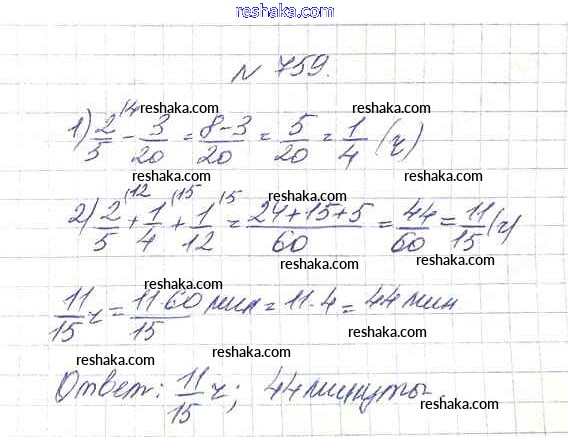 reshaka.com
№ 759.
reshaka.com
1) 2/5 (4 - 3/20 = 8-3/20 = 5/20 = 1/4 (ч)
reshaka.com
reshaka.com
2) 2/5 (12 + 1/4 (15 + 1/12 (5 = 24+15+5/60 = 44/60 = 11/15 (ч)
reshaka.com
reshaka.com
reshaka.com
reshaka.com
11/15 ч = 11·60/15 мин = 11·4 = 44 мин
reshaka.com
reshaka.com
Ответ: 11/15 ч; 44 минуты.
reshaka.com
reshaka.com